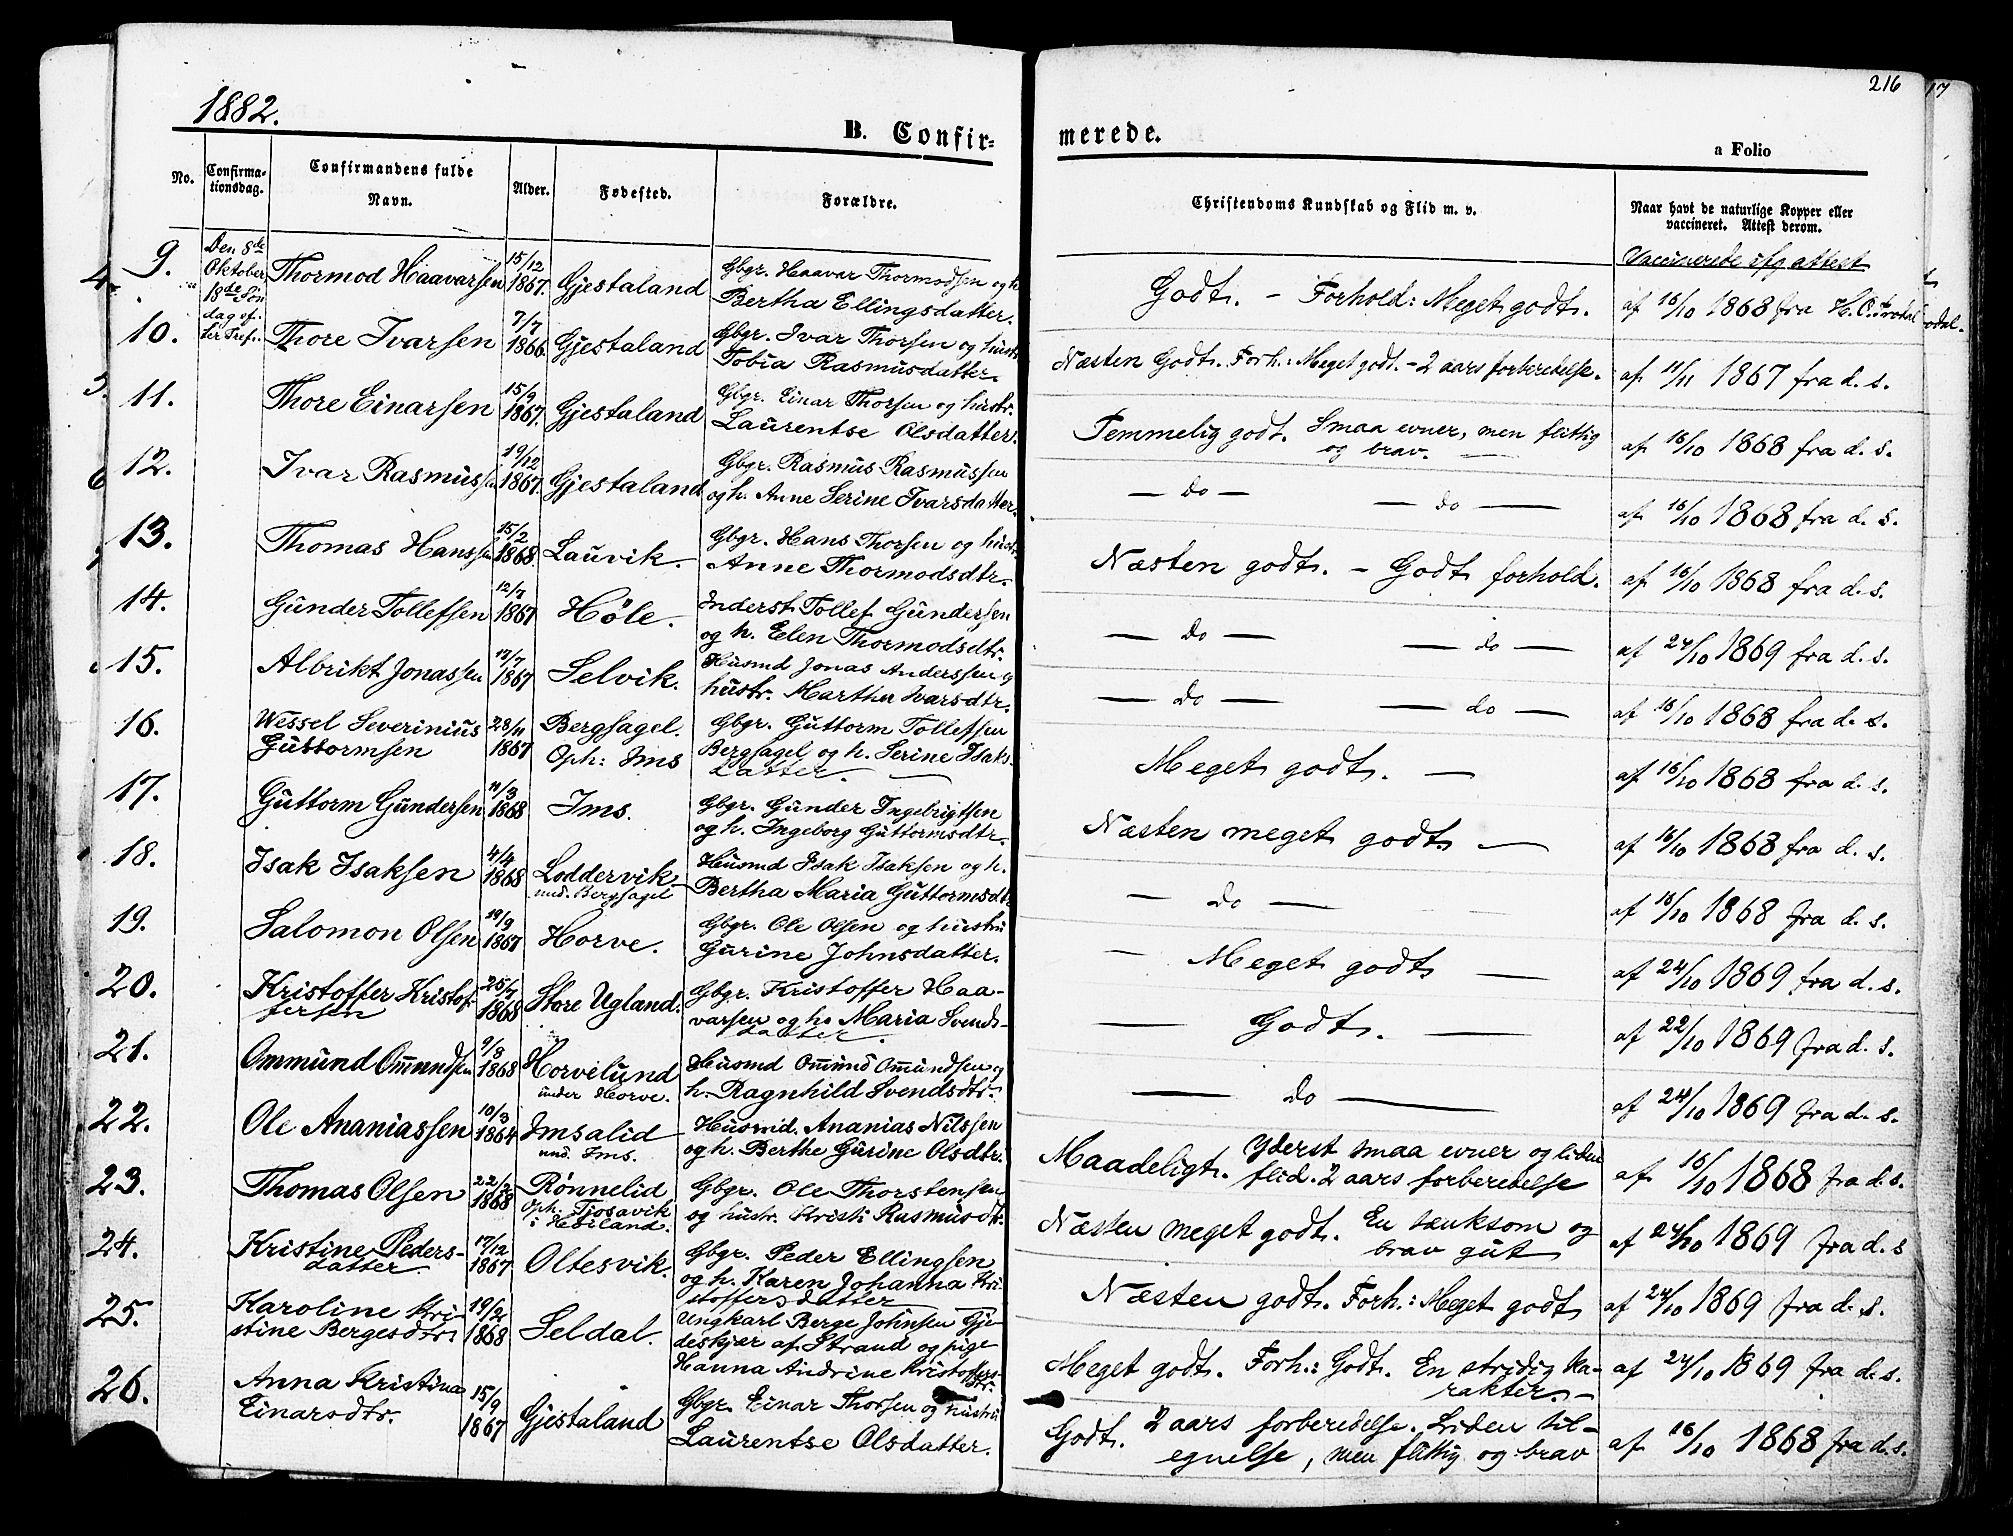 216
17
1882.
B. Confir-
merede.
a Folio
No.
Confirma-
tionsdag.
Confirmandens fulde
Navn.
Alder.
Fødested.
Forældre.
Christendoms Kundskab og Flid m. v.
Naar havt de naturlige Kopper eller
vaccineret. Attest derom.
Den 8de
Oktober
18de Søn
dag ef-
ter Tref.
Vaccinerede ifg attest
9. Thormod Haavarsen 15/12 1867. Gjestaland Gbgr. Haavar Thormodsen og h.
Bertha Ellingsdatter. Godt. - Forhold: Meget godt. af 16/10 1868 fra H.
10. Thore Ivarsen 7/7 1866. Gjestaland Gbgr. Ivar Thorsen og hustr.
Tobia Rasmusdatter. Næsten Godt. Forh.: Meget godt. - 2 aars forberedelse. af 11/11 1867 fra d. s.
11. Thore Einarsen 15/9 1867. Gjestaland Gbgr. Einar Thorsen og hustr.
Laurentse Olsdatter. Temmelig godt. Smaa evner, men flittig
og brav. — af 16/10 1868 fra d. s.
12. Ivar Rasmussen 19/12 1867. Gjestaland Gbgr. Rasmus Rasmussen
og h. Anne Serine Ivarsdatter. — do — — do — af 16/10 1868 fra d. s.
13. Thomas Hanssen 15/2 1868 Lauvik. Gbgr. Hans Thorsen og hustr.
Anne Thormodsdtr. Næsten godt. - Godt forhold. af 16/10 1868 fra d. s.
14. Gunder Tollefsen 12/7 1867 Høle. Inderst Tollef Gundersen
og h. Elen Thormodsdtr. — do — — do — af 24/10 1869 fra d. s.
15. Albrikt Jonassen 12/7 1867 Selvik. Husmd Jonas Anderssen og
hustr. Martha Ivarsdtr. — do — — do — af 16/10 1868 fra d. s.
16. Wessel Severinius
Guttormsen 28/11 1867 Bergsagel.
Oph: Ims Gbgr. Guttorm Tollefsen
Bergsagel og h. Serine Isaks-
datter. — Meget godt. — af 16/10 1868 fra d. s.
17. Guttorm Gundersen 11/3 1868 Ims. Gbgr. Gunder Ingebrigtsen
og h. Ingeborg Guttormsdtr. Næsten meget godt — af 16/10 1868 fra d. s.
18. Isak Isaksen 4/4 1868 Loddervik
und. Bergsagel Husmd Isak Isaksen og h.
Bertha Maria Guttormsdtr — do — af 16/10 1868 fra d. s.
19. Salomon Olsen 19/9 1867 Horve. Gbgr. Ole Olsen og hustru
Gurine Johnsdatter. — Meget godt — af 24/10 1869 fra d. s.
20. Kristoffer Kristof-
fersen 25/7 1868 Store Ugland. Gbgr. Kristoffer Haa-
varsen og h. Maria Svends-
datter. — Godt. — af 22/10 1869 fra d. s.
21. Ommund Ommundsen 9/3 1868 Horvelund
under Horve. Husmd Ommund Ommundsen og
h. Ragnhild Svendsdtr. — do — af 24/10 1869 fra d. s.
22. Ole Ananiassen 10/3 1864 Imsalid
und. Ims. Husmd. Ananias Nilssen
og h. Berthe Gurine Olsdtr. Maadeligt. Yderst smaa evner og liden
flid. 2 aars forberedelse af 16/10 1868 fra d. s.
23. Thomas Olsen 22/3 1868 Rønnelid
Oph: Tjosavik
i Høiland. Gbgr. Ole Thorstensen
og hustr. Kristi Rasmusdtr. Næsten meget godt. En tænksom og
brav gut af 24/10 1869 fra d. s
24. Kristine Peders-
datter. 17/12 1867 Oltesvik. Gbgr. Peder Ellingsen
og h. Karen Johanna Kri-
stoffersdatter — Næsten godt. Forh.: Meget godt af 24/10 1869 fra d. s.
25. Karoline Kri-
stine Bergesdtr 19/2 1868 Seldal. Ungkarl Berge Johnsen Gje-
deskjær af Strand og pige
Hanna Andrine Kristoffers-
dtr. Meget godt. Forh.: Godt. En stridig ka-
rakter. — af 24/10 1869 fra d. s.
26. Anna Kristina
Einarsdtr. 15/9 1867 Gjestaland Gbgr. Einar Thorsen og hustru
Laurentse Olsdatter. Godt. 2 aars forberedelse. Liden til-
egnelse, men flittig og brav af 16/10 1868 fra d. s.